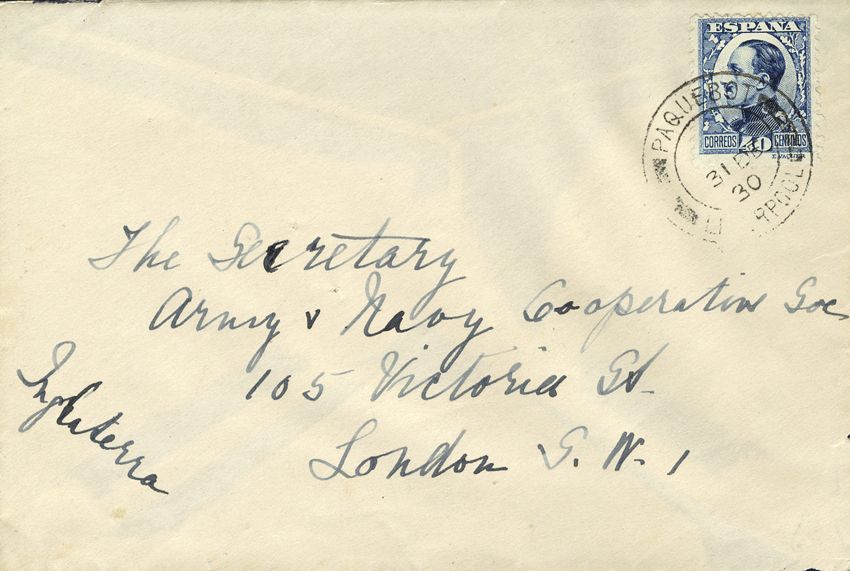 ESPAÑA
CORREOS 40 CENTIMOS
PAQUEBOT
31 DE
30
LI RPOOL
The Secretary
Army & Navy Cooperative Soc
105 Victoria St.
London S. W. 1
Inglaterra